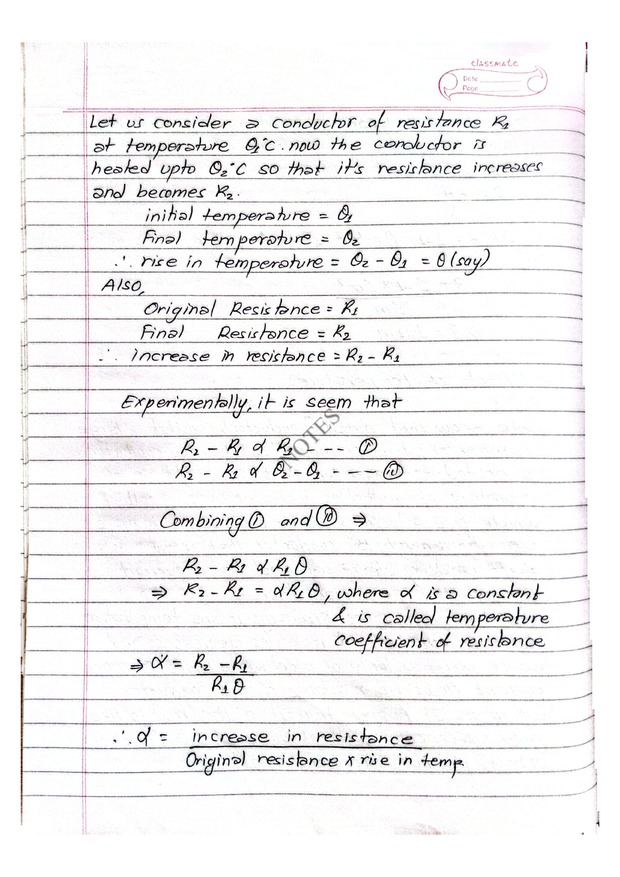 classmate
Date
Page
Let us consider a conductor of resistance R₁
at temperature θ₁°C. now the conductor is
heated upto θ₂°C so that it's resistance increases
and becomes R₂.
initial temperature = θ₁
Final temperature = θ₂
∴ rise in temperature = θ₂ - θ₁ = θ (say)
Also,
Original Resistance = R₁
Final Resistance = R₂
∴ increase in resistance = R₂ - R₁
Experimentally, it is seem that
R₂ - R₁ ∝ R₁ - - - ⓘ
R₂ - R₁ ∝ θ₂ - θ₁ - - - - ⓘⓘ
NOTES
Combining ⓘ and ⓘⓘ ⇒
R₂ - R₁ ∝ R₁θ
⇒ R₂ - R₁ = αR₁θ, where α is a constant
& is called temperature
coefficient of resistance
⇒ α = R₂ - R₁
R₁θ
∴ α = increase in resistance
Original resistance x rise in temp.